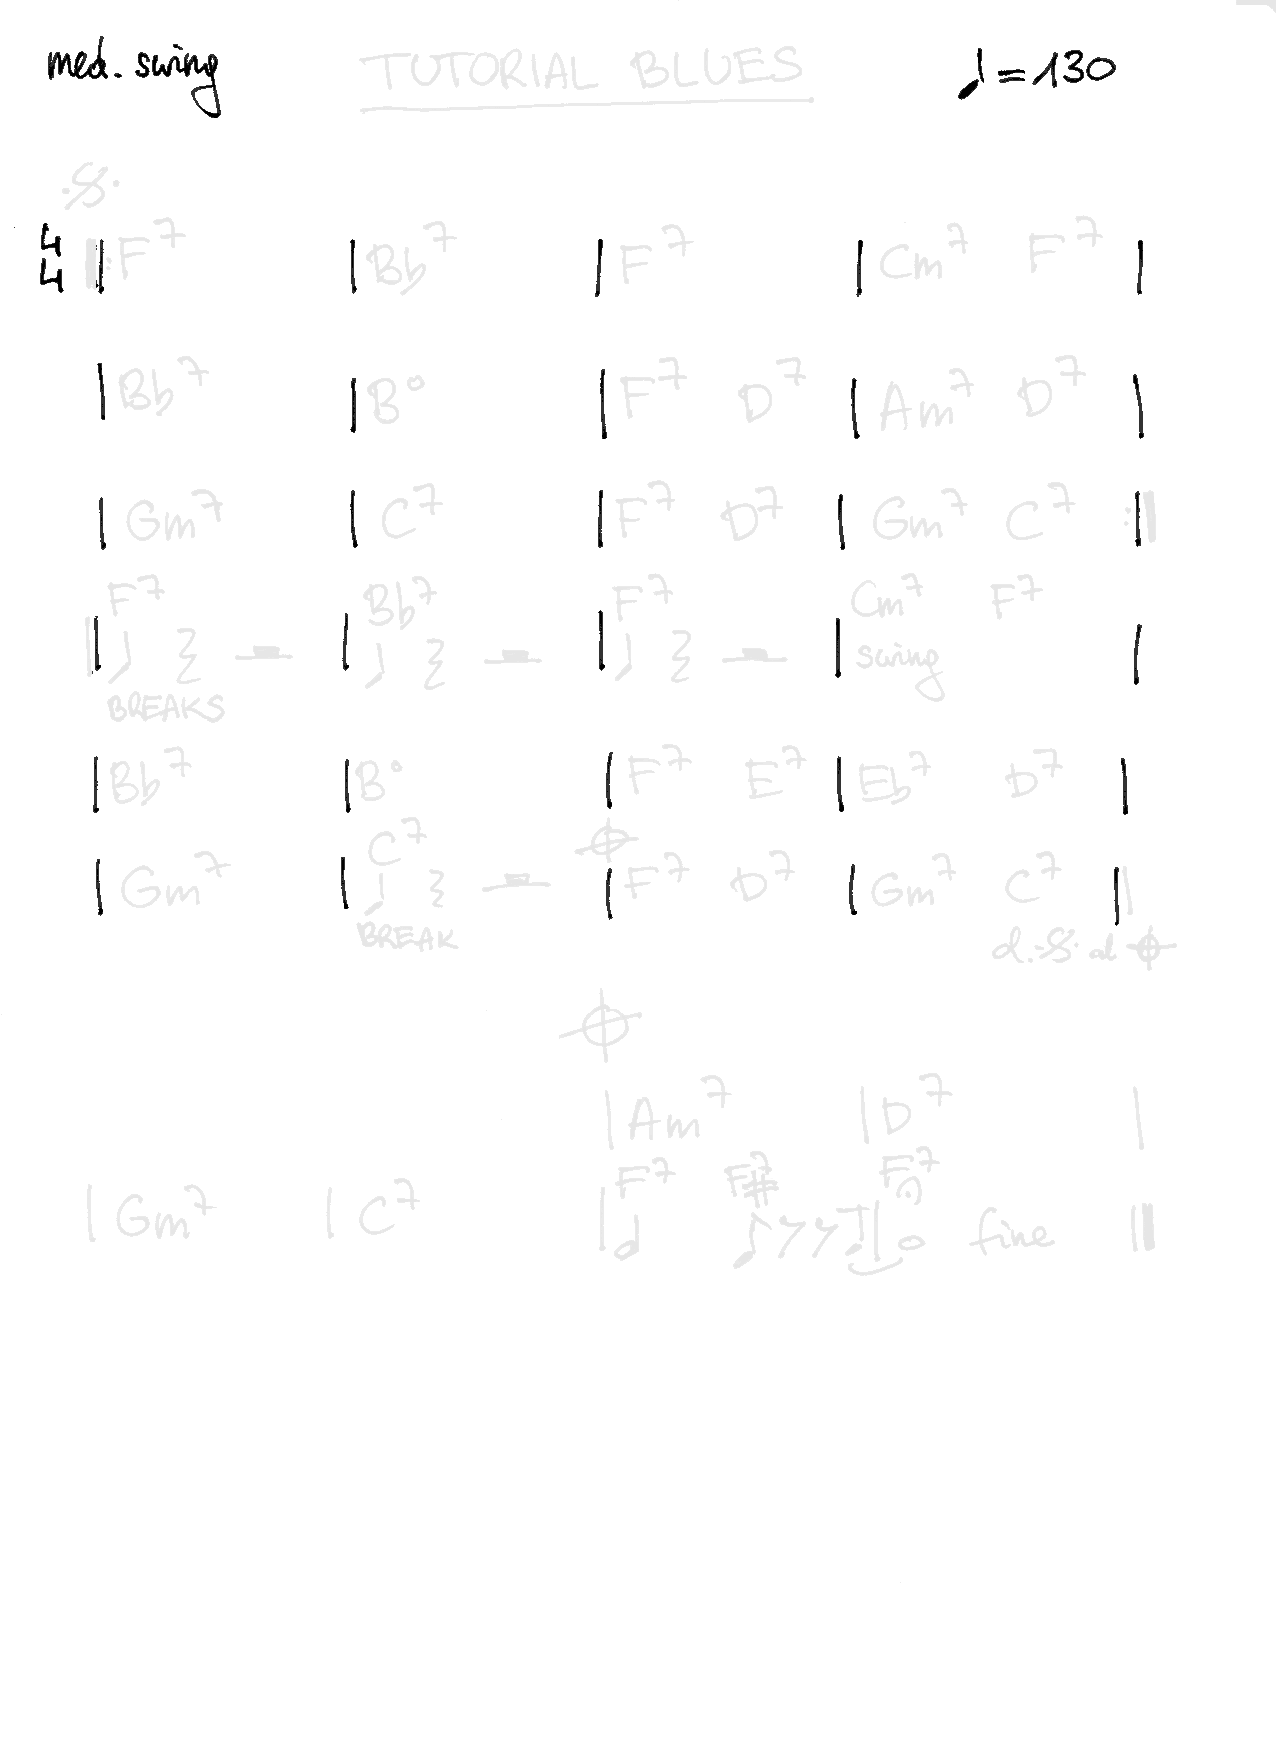 med. swing TUTORIAL BLUES ♩=130
𝄋
4/4 ‖: F7 | Bb7 | F7 | Cm7 F7 |
| Bb7 | B° | F7 D7 | Am7 D7 |
| Gm7 | C7 | F7 D7 | Gm7 C7 :‖
F7 Bb7 F7 Cm7 F7
‖ ♩ 𝄽 𝄼 | ♩ 𝄽 𝄼 | ♩ 𝄽 𝄼 | swing |
BREAKS
| Bb7 | B° | F7 E7 | Eb7 D7 |
C7 𝄌
| Gm7 | ♩ 𝄽 𝄼 | F7 D7 | Gm7 C7 ‖
BREAK d.𝄋. al 𝄌
𝄌
| Am7 | D7 |
F7 F#7 F7
| Gm7 | C7 | 𝅗𝅥 ♪ 𝄾 𝄾 ♪ | 𝅝 fine ‖